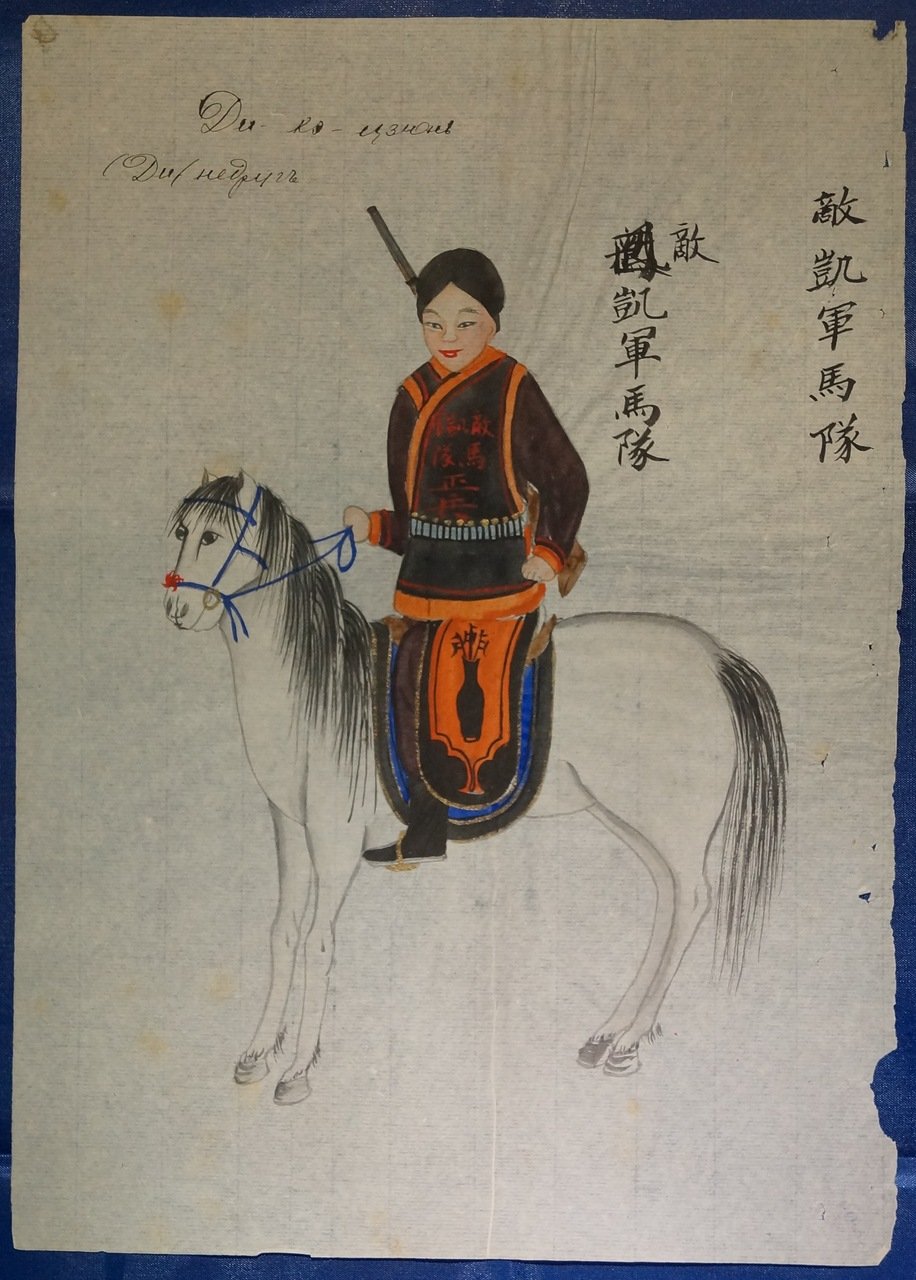 Ди-ка-цзюнь
(Ди) недругъ
敵凱軍馬隊
敵
凱軍馬隊
敵馬
凱隊
正